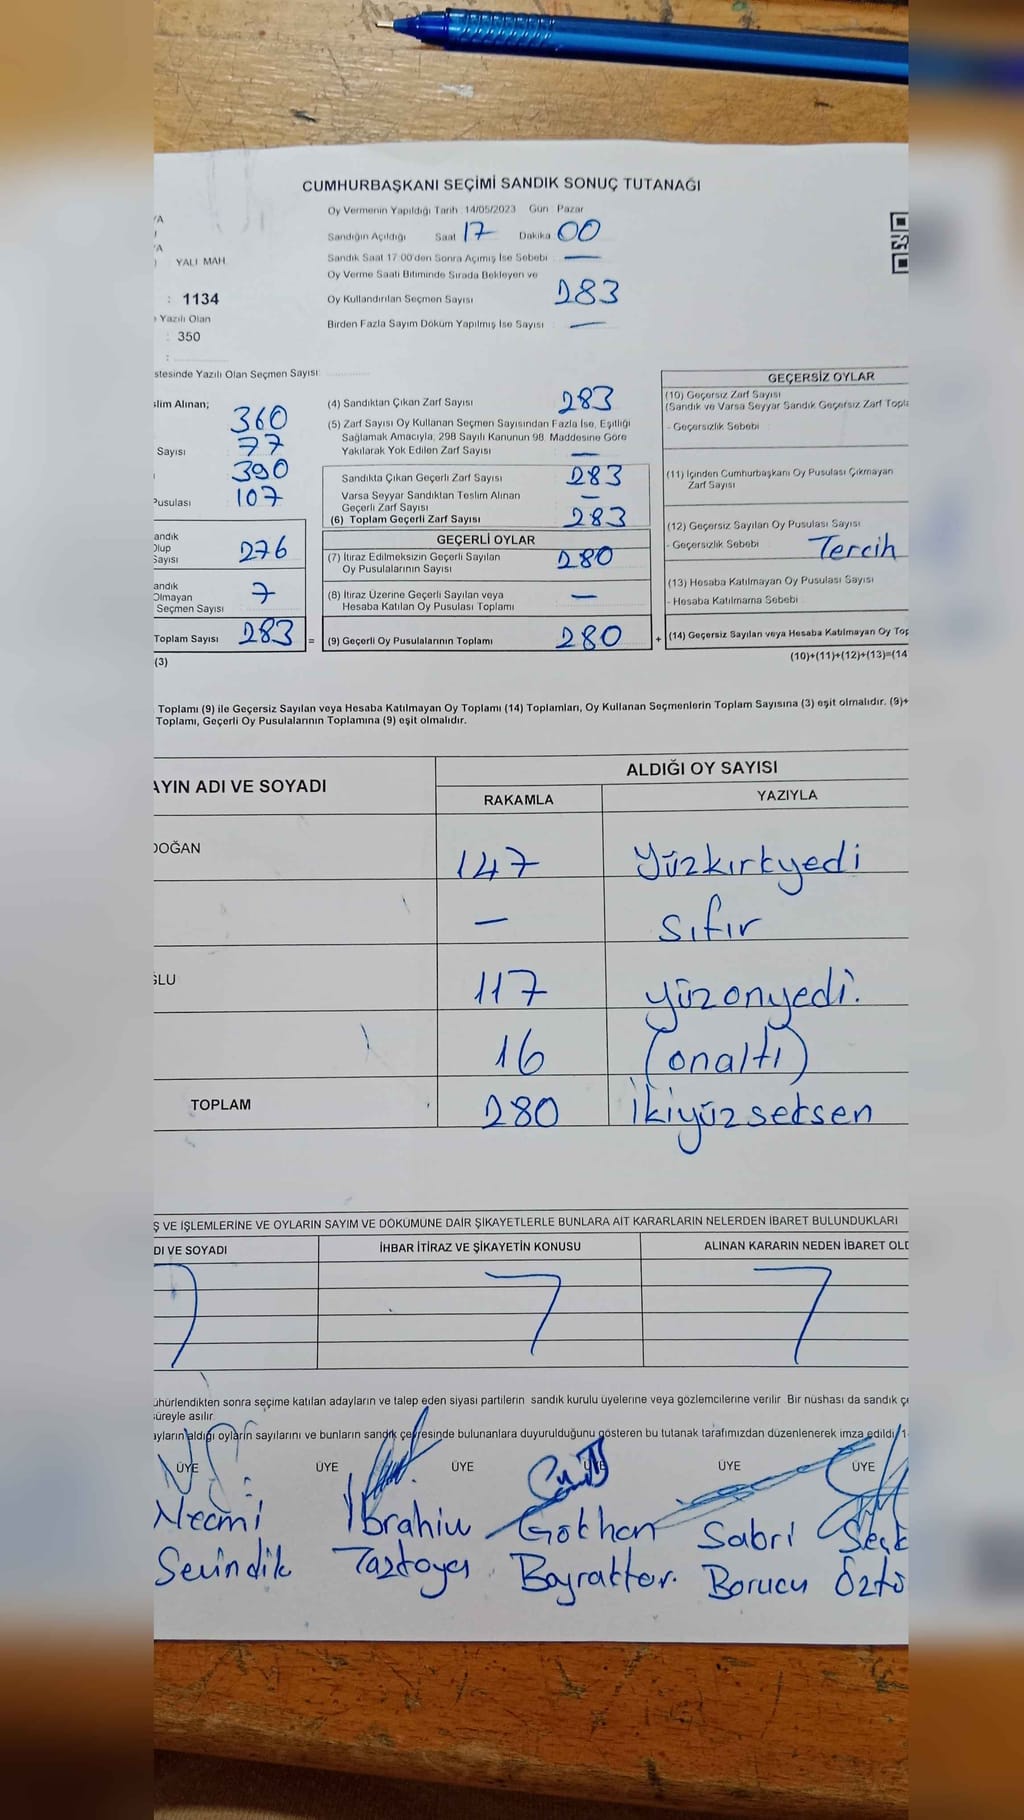 CUMHURBAŞKANI SEÇİMİ SANDIK SONUÇ TUTANAĞI
Oy Vermenin Yapıldığı Tarih : 14/05/2023 Gün : Pazar
Sandığın Açıldığı Saat 17 Dakika 00
Sandık Saat 17:00'den Sonra Açımış İse Sebebi —
Oy Verme Saati Bitiminde Sırada Bekleyen ve
Oy Kullandırılan Seçmen Sayısı 283
Birden Fazla Sayım Döküm Yapılmış İse Sayısı —
YALI MAH.
: 1134
Yazılı Olan
: 350
stesinde Yazılı Olan Seçmen Sayısı:
slim Alınan;
360
Sayısı 77
390
Pusulası 107
andık
Olup
Sayısı 276
andık
Olmayan
Seçmen Sayısı 7
Toplam Sayısı 283 =
(3)
(4) Sandıktan Çıkan Zarf Sayısı 283
(5) Zarf Sayısı Oy Kullanan Seçmen Sayısından Fazla İse, Eşitliği
Sağlamak Amacıyla, 298 Sayılı Kanunun 98. Maddesine Göre
Yakılarak Yok Edilen Zarf Sayısı —
Sandıkta Çıkan Geçerli Zarf Sayısı 283
Varsa Seyyar Sandıktan Teslim Alınan
Geçerli Zarf Sayısı —
(6) Toplam Geçerli Zarf Sayısı 283
GEÇERLİ OYLAR
(7) İtiraz Edilmeksizin Geçerli Sayılan
Oy Pusulalarının Sayısı 280
(8) İtiraz Üzerine Geçerli Sayılan veya
Hesaba Katılan Oy Pusulası Toplamı —
(9) Geçerli Oy Pusulalarının Toplamı 280 +
GEÇERSİZ OYLAR
(10) Geçersiz Zarf Sayısı
(Sandık ve Varsa Seyyar Sandık Geçersiz Zarf Topla
- Geçersizlik Sebebi
(11) İçinden Cumhurbaşkanı Oy Pusulası Çıkmayan
Zarf Sayısı
(12) Geçersiz Sayılan Oy Pusulası Sayısı
- Geçersizlik Sebebi Tercih
(13) Hesaba Katılmayan Oy Pusulası Sayısı
- Hesaba Katılmama Sebebi
(14) Geçersiz Sayılan veya Hesaba Katılmayan Oy Top
(10)+(11)+(12)+(13)=(14
Toplamı (9) ile Geçersiz Sayılan veya Hesaba Katılmayan Oy Toplamı (14) Toplamları, Oy Kullanan Seçmenlerin Toplam Sayısına (3) eşit olmalıdır. (9)+
Toplamı, Geçerli Oy Pusulalarının Toplamına (9) eşit olmalıdır.
AYIN ADI VE SOYADI ALDIĞI OY SAYISI
RAKAMLA YAZIYLA
DOĞAN 147 Yüzkırkyedi
— sıfır
ĞLU 117 yüzonyedi.
16 (onaltı)
TOPLAM 280 İkiyüzseksen
Ş VE İŞLEMLERİNE VE OYLARIN SAYIM VE DÖKÜMÜNE DAİR ŞİKAYETLERLE BUNLARA AİT KARARLARIN NELERDEN İBARET BULUNDUKLARI
DI VE SOYADI İHBAR İTİRAZ VE ŞİKAYETİN KONUSU ALINAN KARARIN NEDEN İBARET OLD
ühürlendikten sonra seçime katılan adayların ve talep eden siyasi partilerin sandık kurulu üyelerine veya gözlemcilerine verilir. Bir nüshası da sandık çe
süreyle asılır.
ayların aldığı oyların sayılarını ve bunların sandık çevresinde bulunanlara duyurulduğunu gösteren bu tutanak tarafımızdan düzenlenerek imza edildi.
ÜYE ÜYE ÜYE ÜYE ÜYE ÜYE
Necmi İbrahim Gökhan Sabri Seçk
Sevindik Taztoya Bayraktar. Borucu Öztü